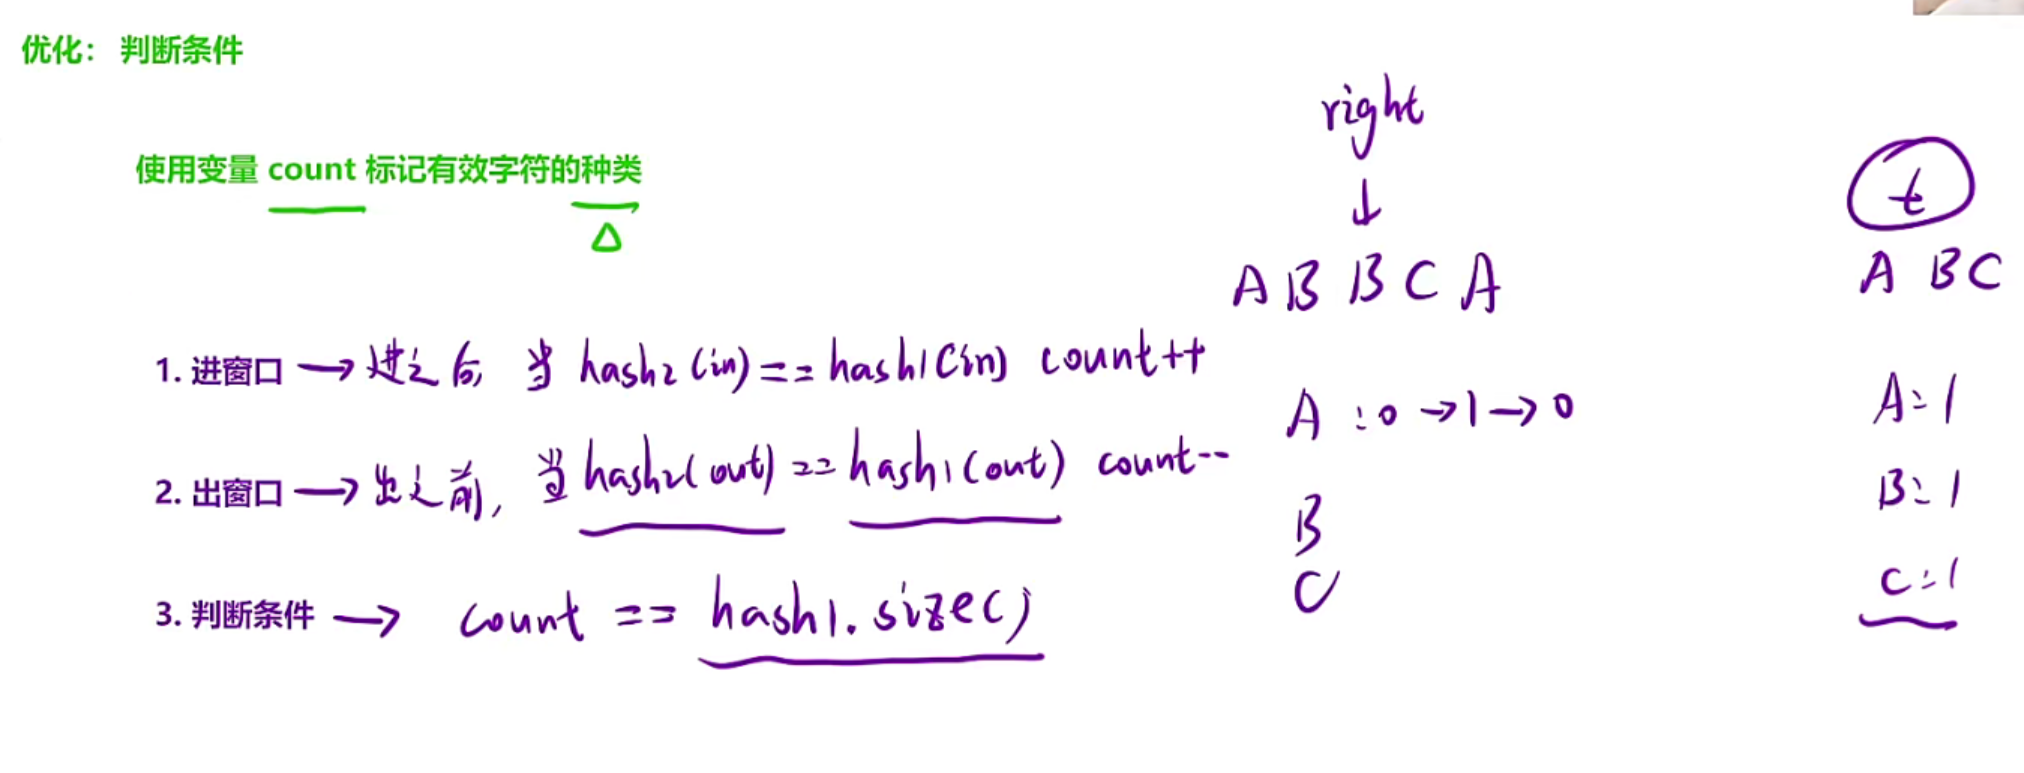 优化： 判断条件
使用变量 count 标记有效字符的种类
right
↓
A B B C A
t
A B C
1. 进窗口 → 进之后, 当 hash2(in) == hash1(in) count++
2. 出窗口 → 出之前, 当 hash2(out) == hash1(out) count--
3. 判断条件 → count == hash1.size()
A : 0 → 1 → 0
B
C
A: 1
B: 1
C: 1